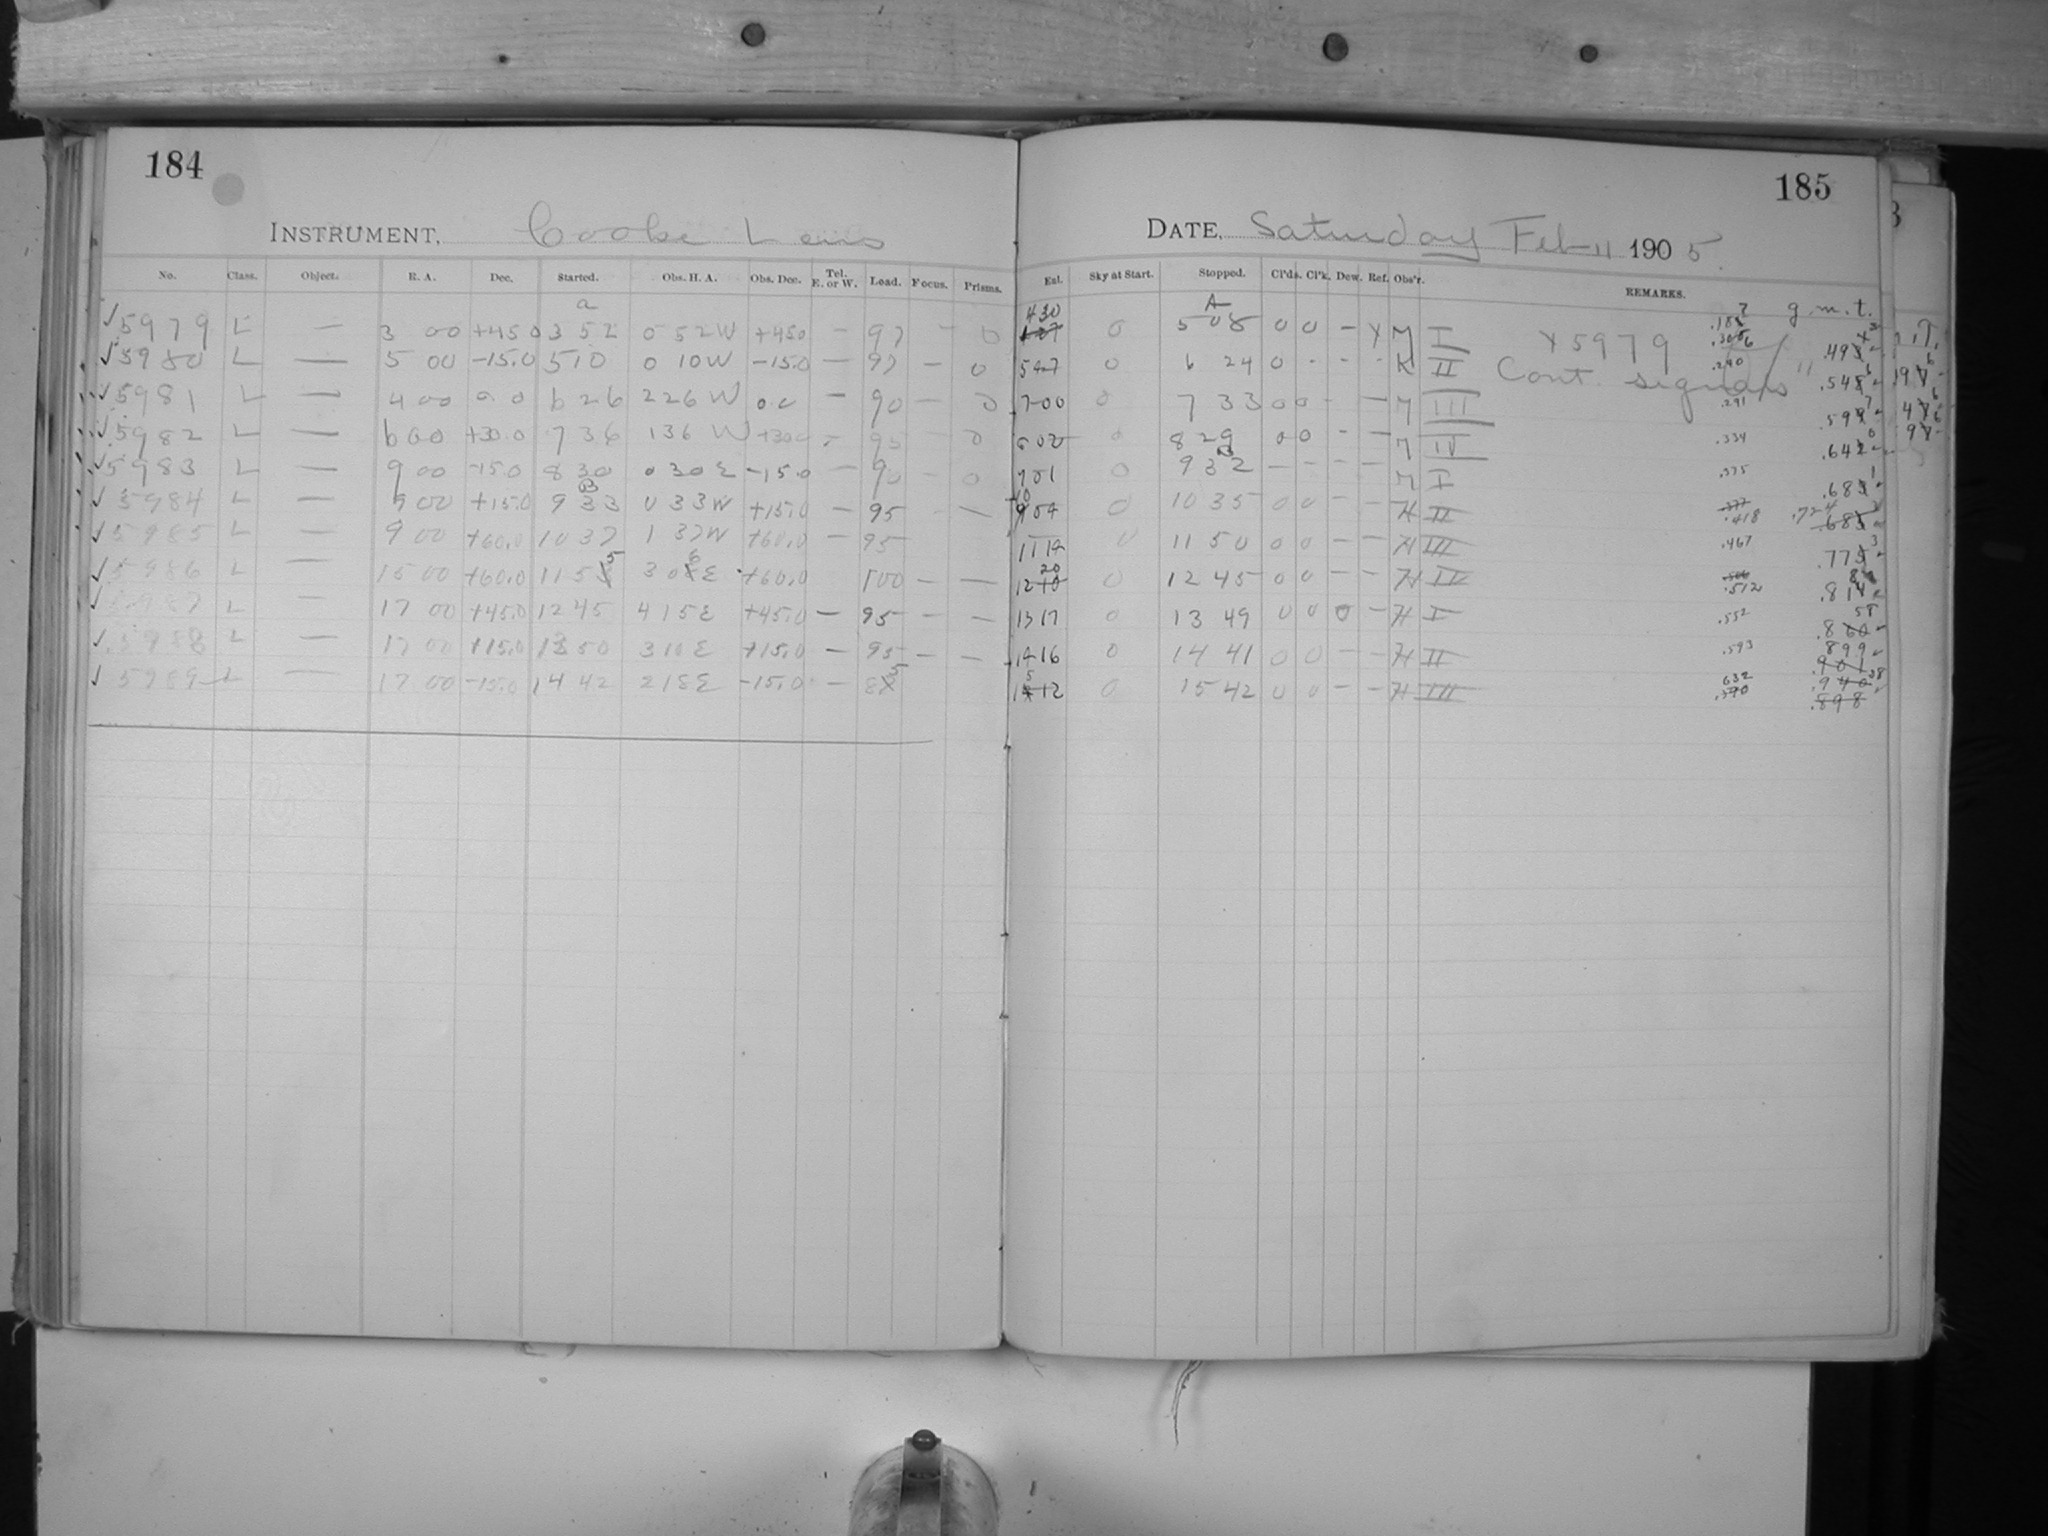 184
185
INSTRUMENT, Cooke Lens
DATE, Saturday Feb 11 1905
No. Class. Object. R. A. Dec. Started. Obs. H. A. Obs. Dec. Tel. E. or W. Lead. Focus. Prisms. Eal. Sky at Start. Stopped. Cl'ds. Cl'k. Dew. Ref. Obs'r. REMARKS.
a 430 A g. m. t.
✓5979 L — 3 00 +45.0 3 52 0 52W +45.0 — 97 — 0 0 5 08 0 0 — Y M I Y 5979
✓5980 L — 5 00 -15.0 5 10 0 10W -15.0 — 97 — 0 547 0 6 24 0 - - - K II Cont. signals" .290 .548
✓5981 L — 4 00 0 0 6 26 2 26 W 0.0 — 90 — 0 700 0 7 33 0 0 - - M III .291 .597
✓5982 L — 6 00 +30.0 7 36 1 36 W +30.0 - 95 0 802 0 8 29 0 0 — — M IV .334 .640
✓5983 L — 9 00 -15.0 8 30 0 30 E -15.0 — 90 — 0 901 0 9 32 — — — — M I .375 .681
✓5984 L — 9 00 +15.0 9 33 0 33W +15.0 — 95 — 1004 0 10 35 0 0 — — H II .418 .724
✓5985 L — 9 00 +60.0 10 37 1 37W +60.0 — 95 1114 0 11 50 0 0 — — H III .467 .773
✓5986 L — 15 00 +60.0 11 55 3 06 E +60.0 100 — — 1220 0 12 45 0 0 — — H IV .512 .818
✓5987 L — 17 00 +45.0 12 45 4 15 E +45.0 — 95 — — 1317 0 13 49 0 0 0 — H I .552 .858
✓5988 L — 17 00 +15.0 13 50 3 10 E +15.0 — 95 — — 1416 0 14 41 0 0 — — H II .593 .899
✓5989 L — 17 00 -15.0 14 42 2 18 E -15.0 — 85 1512 0 15 42 0 0 — — H III .632 .938